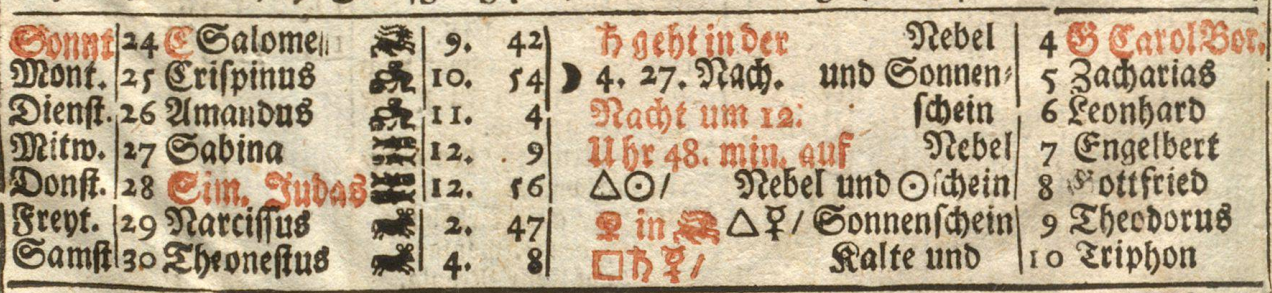 Sonnt 24 C Salome 9. 42 ♄ geht in der Nebel 4 G Carol Bor.
Mont. 25 Criſpinus 10. 54 ☽ 4. 27. Nach. und Sonnen⸗ 5 Zacharias
Dienſt. 26 Amandus 11. 4 Nacht um 12: ſchein 6 Leonhard
Mitw. 27 Sabina 12. 9 Uhr 48. min. auf Nebel 7 Engelbert
Donſt. 28 Sim. Judas 12. 56 △☉/ Nebel und ☉ſchein 8 Gottfried
Freyt. 29 Narciſſus 2. 47 in △☿/ Sonnenſchein 9 Theodorus
Samſt 30 Theoneſtus 4. 8 □♄☿/ Kalte und 10 Triphon